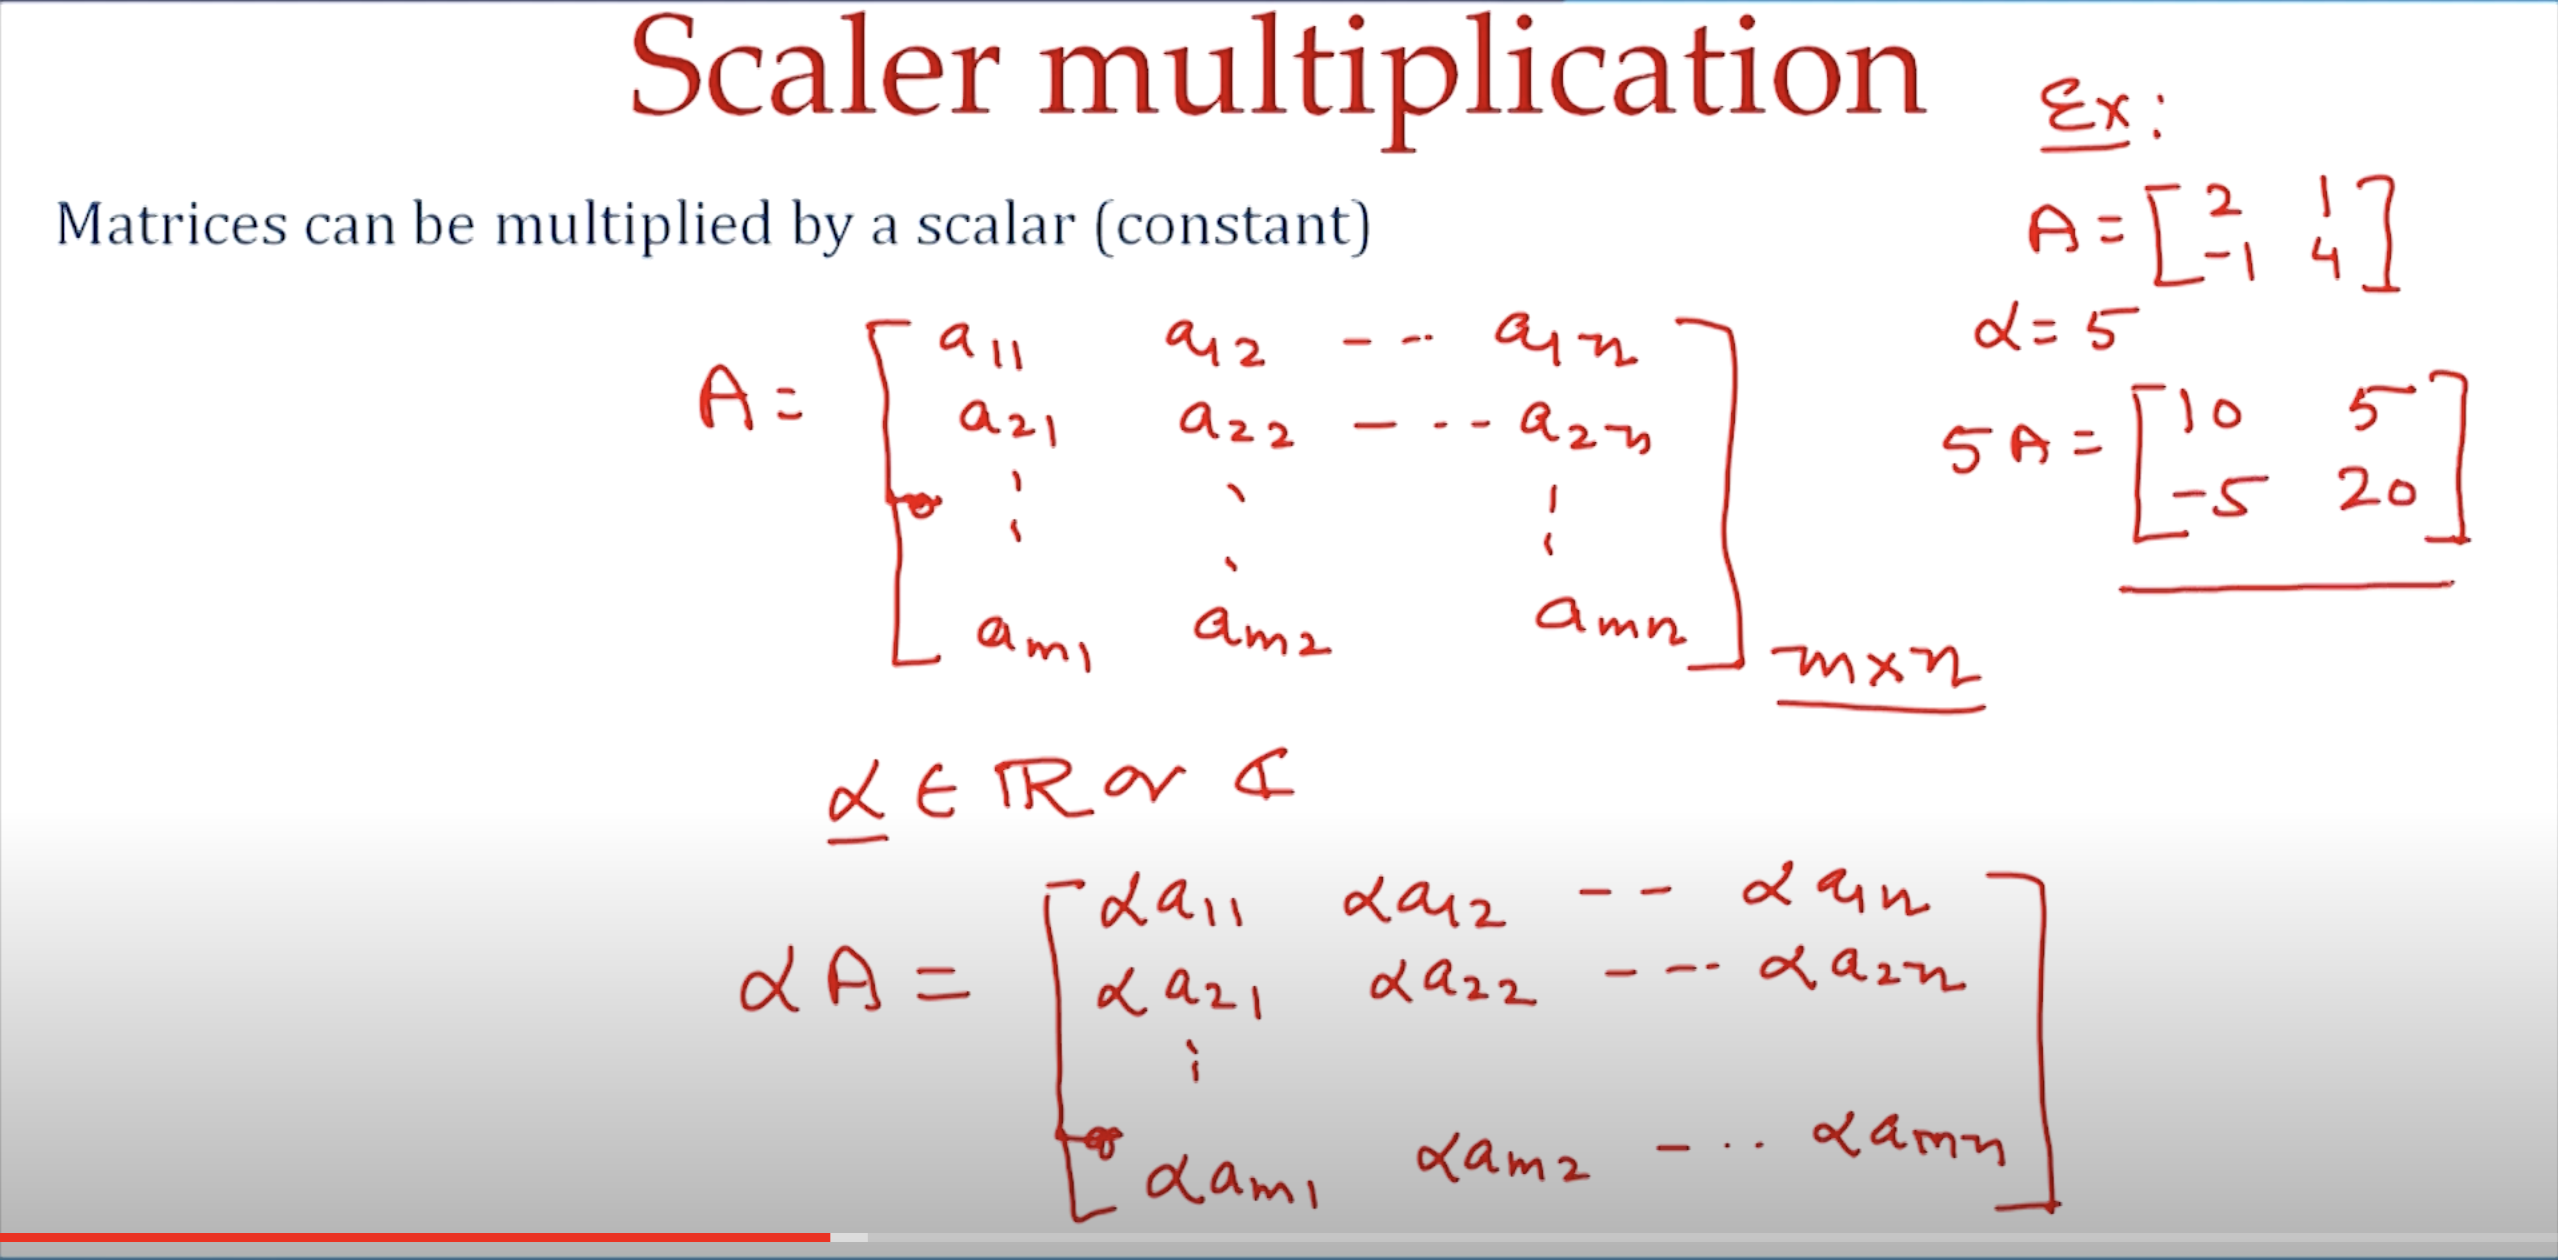 Scaler multiplication
Matrices can be multiplied by a scalar (constant)
A = [ a11 a12 - -·· a1n
a21 a22 - --- a2n
am1 am2 amn ] m×n
α ∈ ℝ or ℂ
αA = [ αa11 αa12 -- αa1n
αa21 αa22 ---- αa2n
αam1 αam2 -··· αamn ]
Ex:
A = [ 2 1
-1 4 ]
α = 5
5A = [ 10 5
-5 20 ]